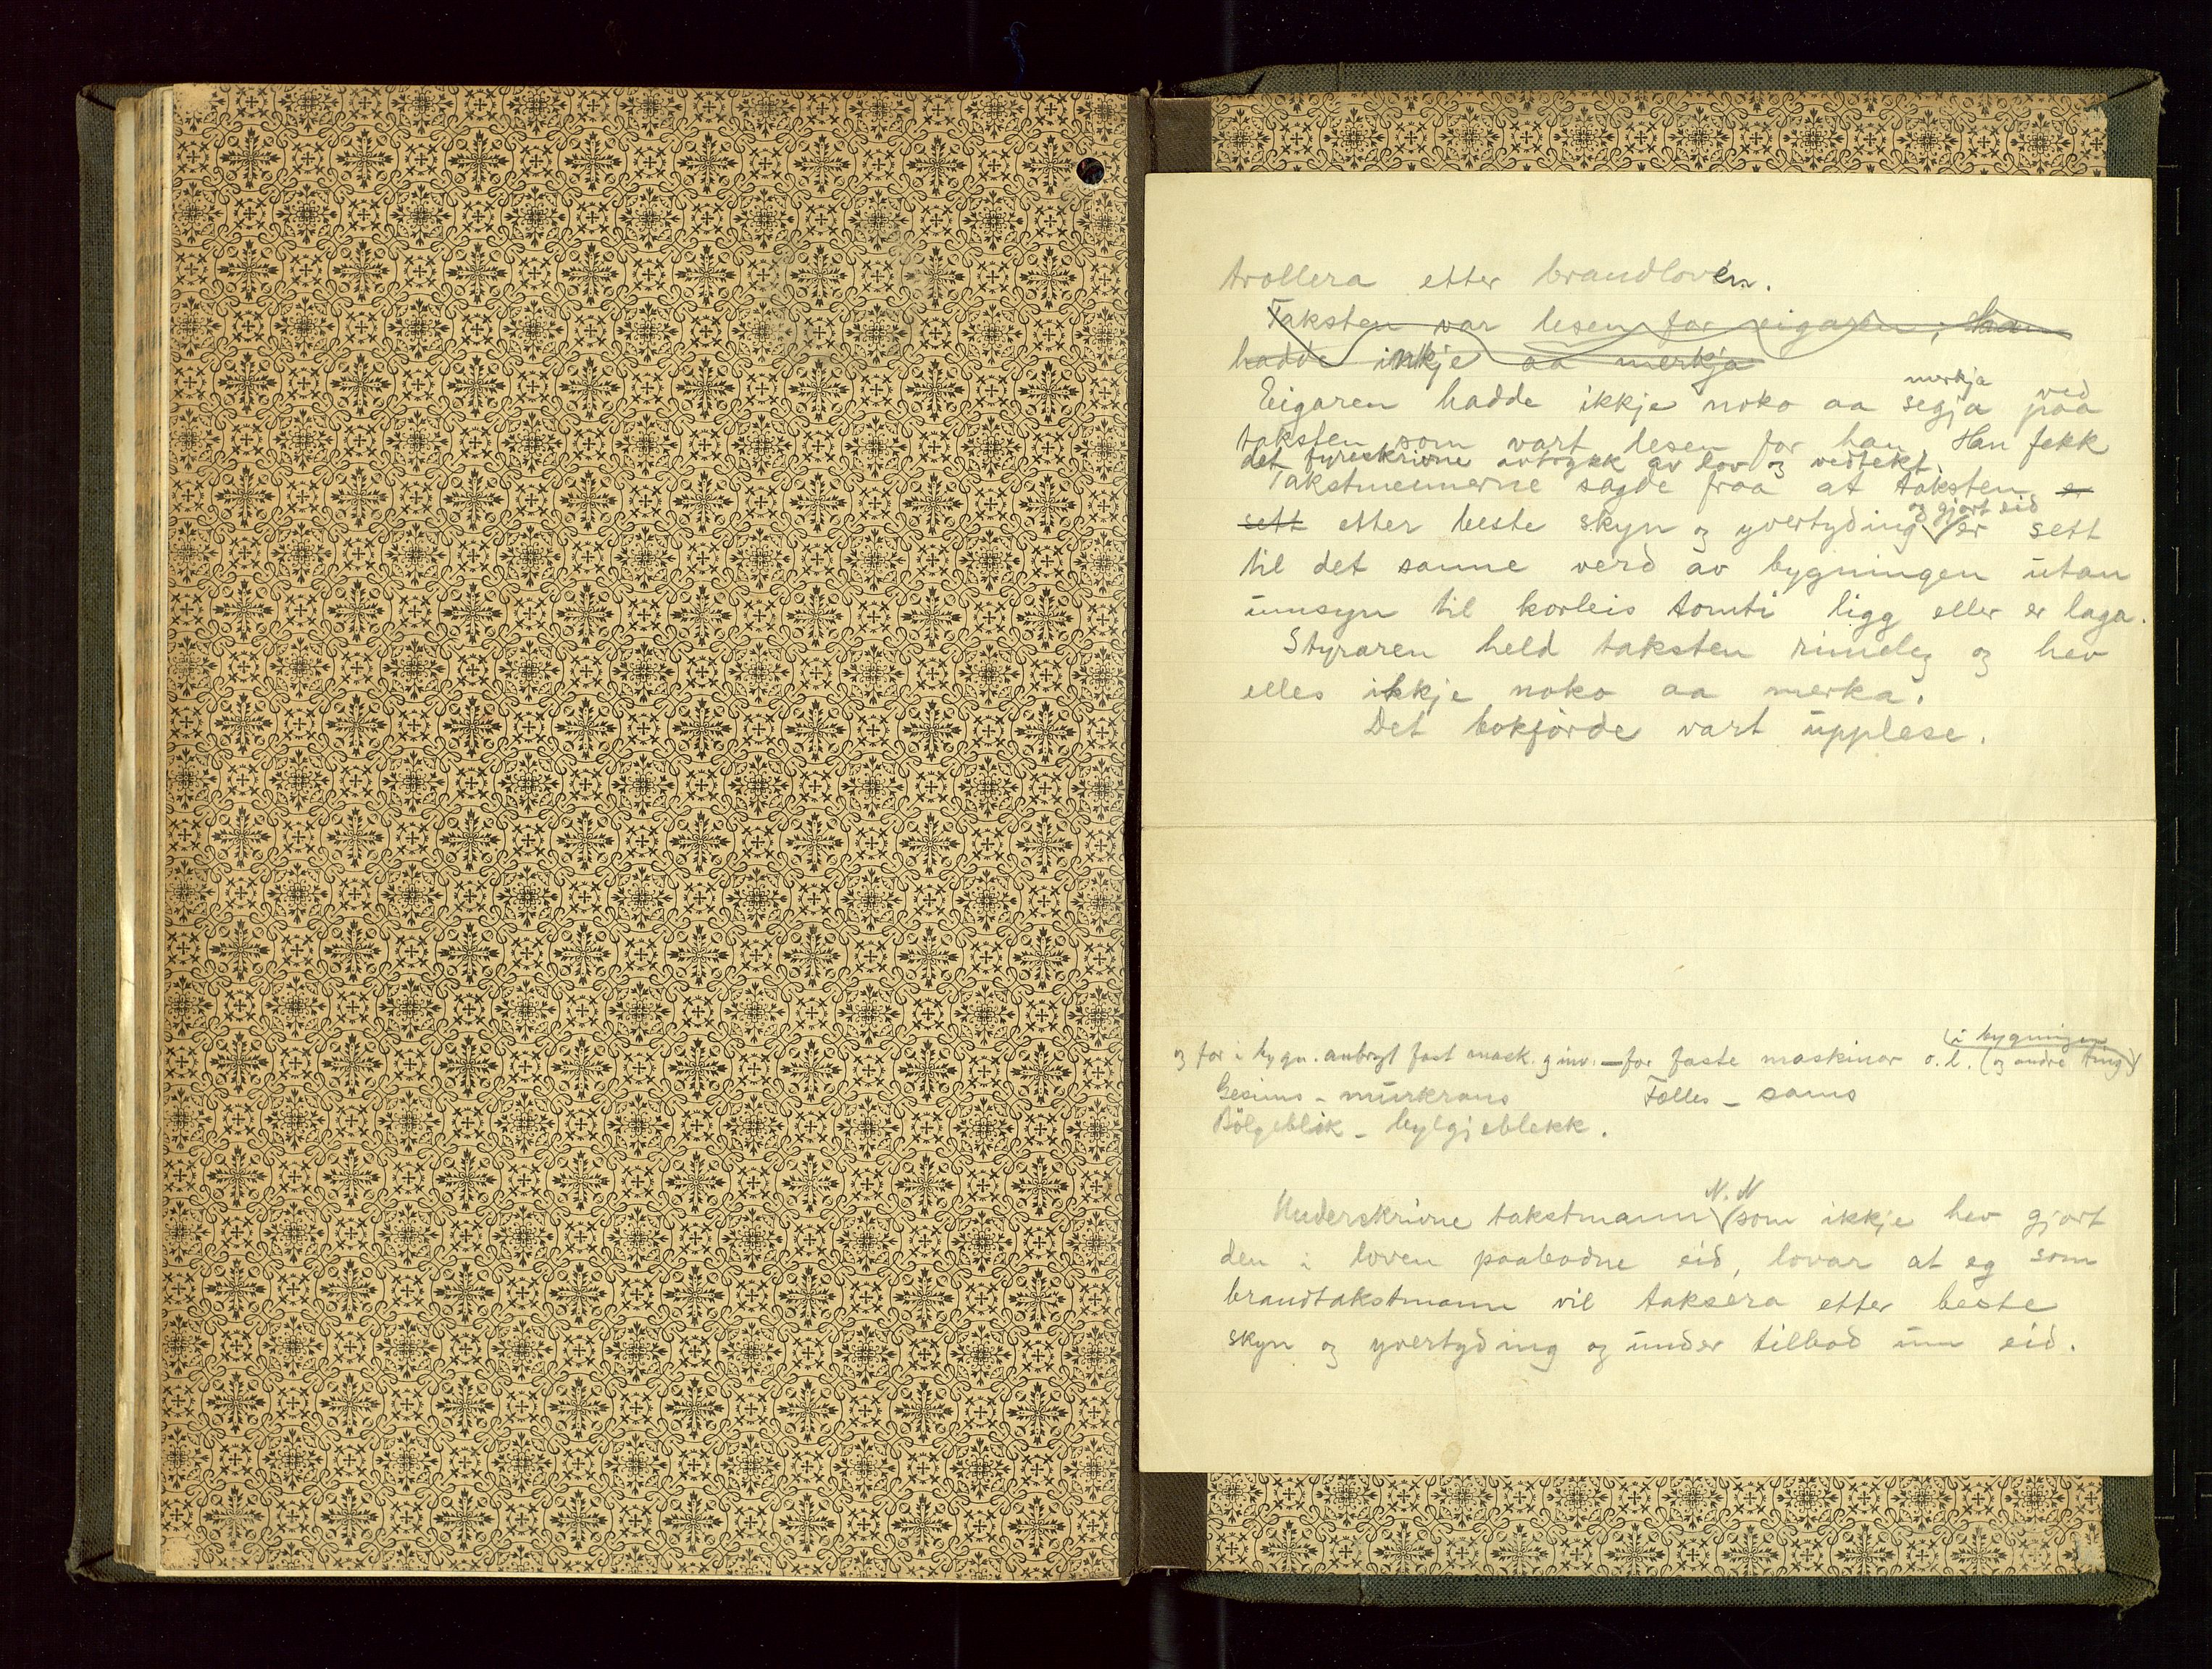 trollera etter brandloven.
Taksten var lesen for eigaren; han
hadde inkje aa merkja
merkja ved
Eigaren hadde ikkje noko aa segja paa
taksten som vart lesen for han. Han fekk
det fyreskrivne avtrykk av lov og vedtekt.
Takstmennerne sagde fraa at taksten e
og gjort eid
sett etter beste skyn og yvertyding er sett
til det sanne verd av bygningen utan
umsyn til korleis tomti ligg eller er laga.
Styraren held taksten rimeleg og hev
elles ikkje noko aa merka.
Det bokförde vart upplese.
(i bygningen
og for i bygn. anbragt fast mask. og inv. — for faste maskinor o.l. (og andre ting)
Gesims - murkrans Fælles - sams
Bölgeblik - bylgjeblekk.
N.N
Underskrivne takstmann som ikkje hev gjort
den i loven paabodne eid, lovar at eg som
brandtakstmann vil taksera etter beste
skyn og yvertyding og under tilbod um eid.